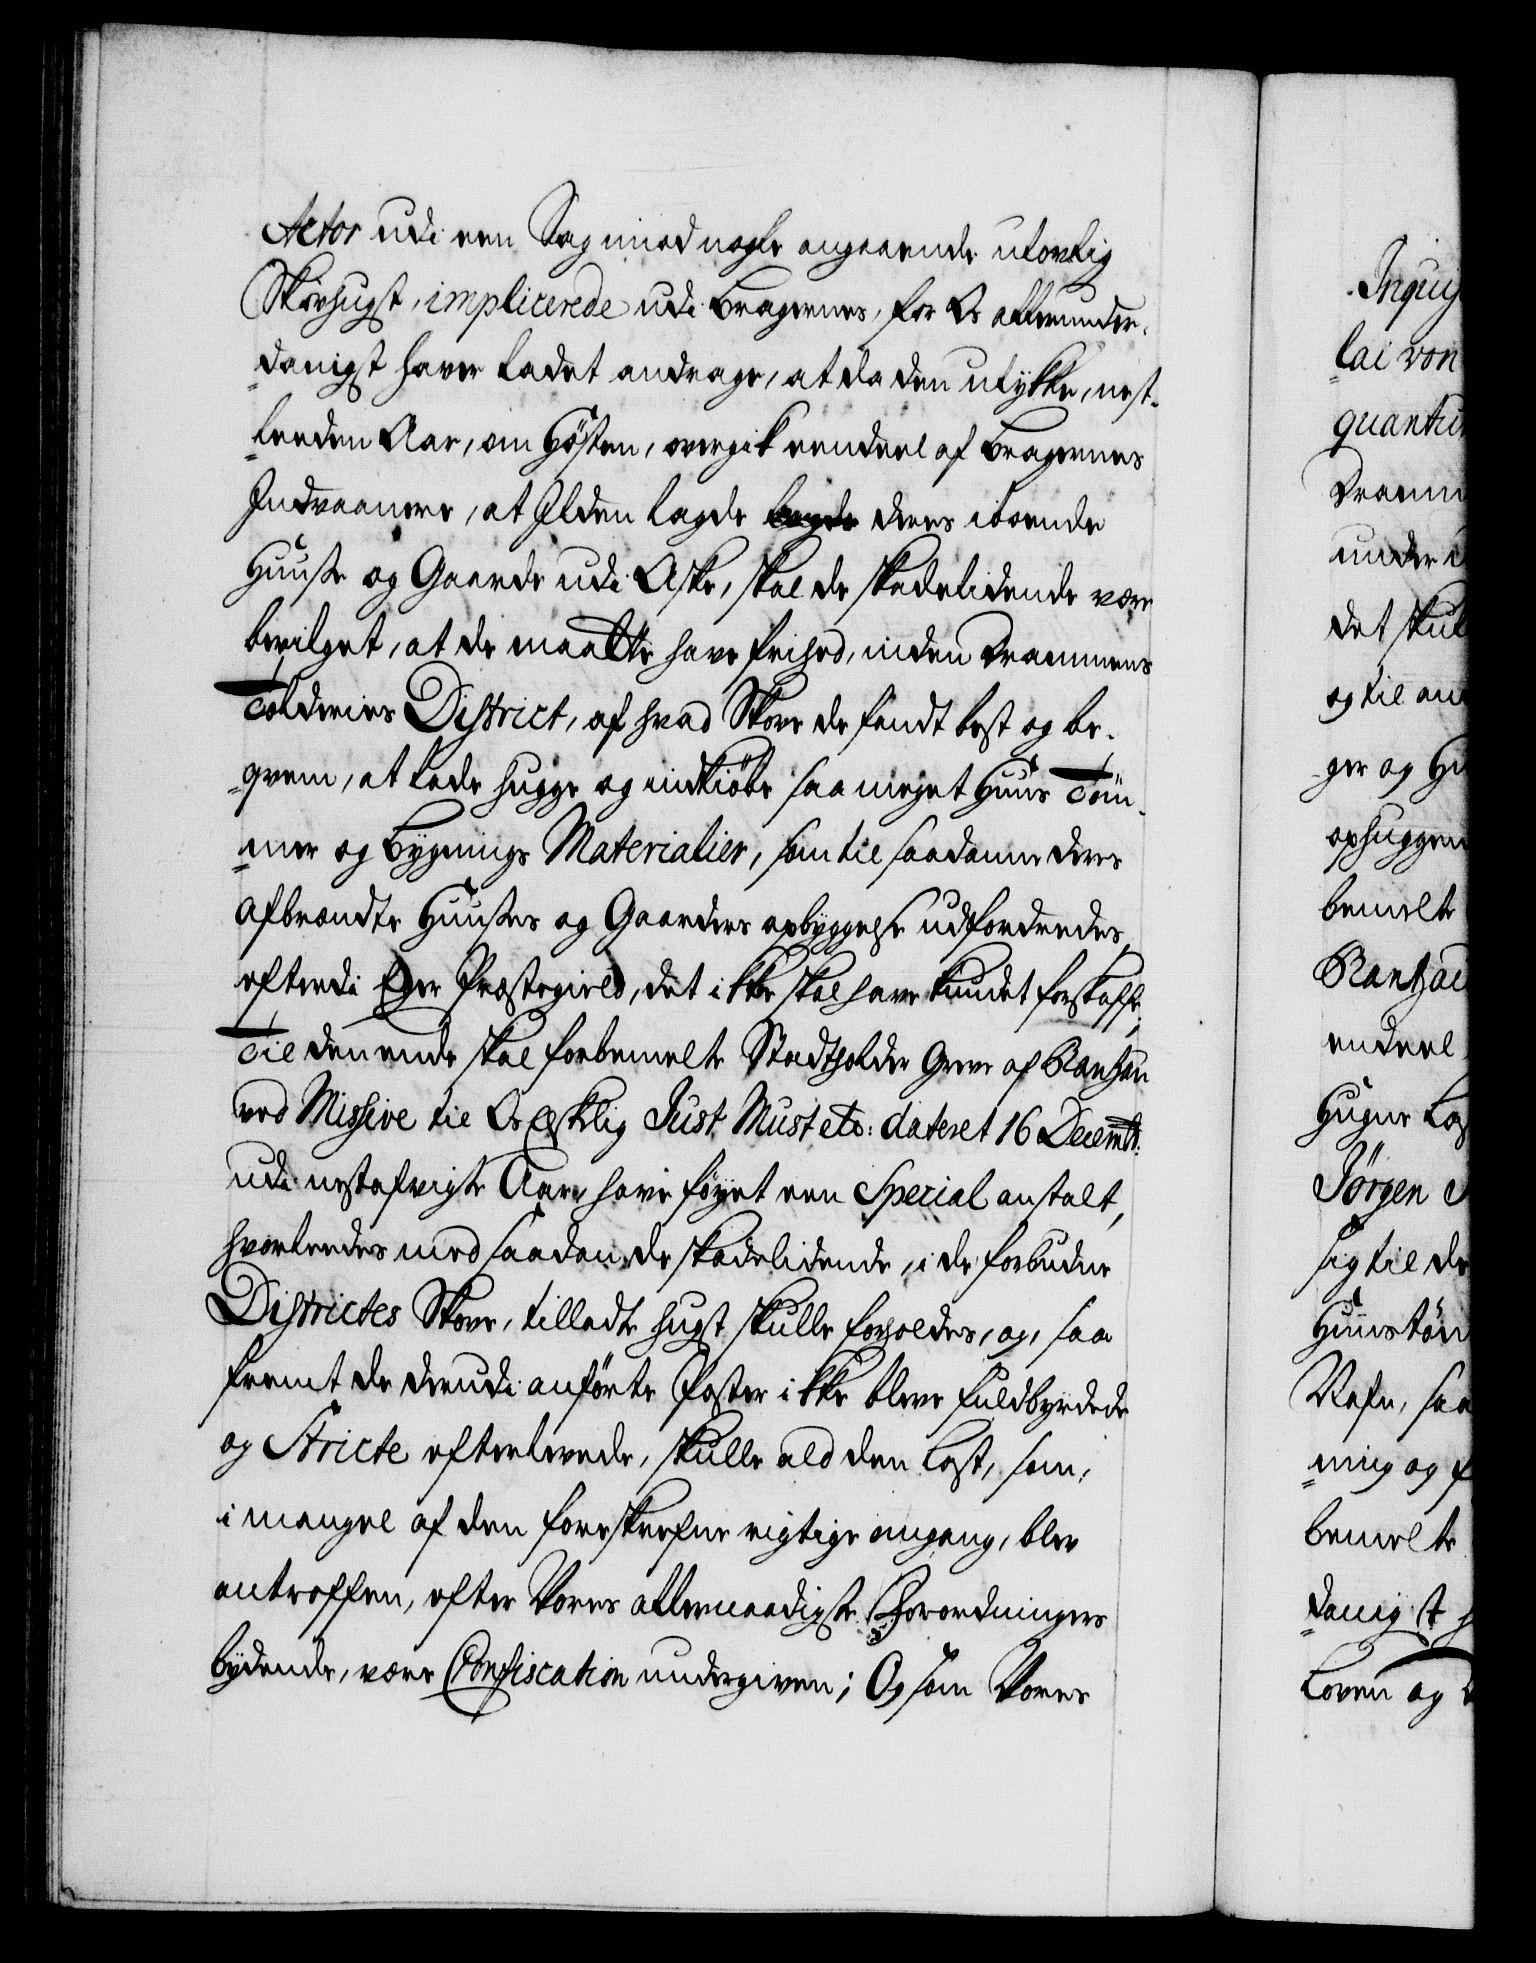 Actor udi een Sag imod nogle angaaende ulovlig
Skovhugst, implicerede udi Bragernes, for Os allerunder-
danigst haver ladet andrage, at da den ulykke, nest-
leeden Aar, om Høsten, overgik eendeel af Bragernes
Indvaanere, at Ilden lagde deres iboende
Huuse og Gaarde udi Aske, skal de skadelidende være
bevilget, at de maatte have frihed, inden Drammens
Tolderies District, af hvad Skove de fandt best og be-
qvem, at lade hugge og indkiøbe saa meget Huus Töm-
mer og Bygnings Materialier, som til saadanne deres
afbrændte Huuses og Gaarders opbyggelse udfordredes,
efterdi Eger Præstegield, det ikke skal have kundet forskaffe;
Til den ende skal forbemelte Stadtholder Greve af Ranzau
ved Missive til Os Elskelig Just Must etc: dateret 16 Decembr:
udi nestafvigte Aar, have føyet een Special anstalt,
hvorledes med saadan de skadelidende, i de forbudne
Districtes Skove, tilladte hugst skulle forholdes, og, saa
fremt de derudi anförte Poster ikke bleve fuldbyrdede
og Stricte efterlevede, skulle ald den Last, som,
i mangel af den foreskrefne rigtige omgang, blev
antroffen, efter Vores allernaadigste Forordningers
bydende, være Confiscation undergiven; Og som Vores
Inquis
lai von
quantu
Dramm
under
det skul
og til an
ger og Hu
ophuggen
bemelte
Rantzau
endeel
Hugne Las
Jörgen
sig til de
Huustöm
Vefn, saa
ning og f
bemelte
danigst h
Loven og